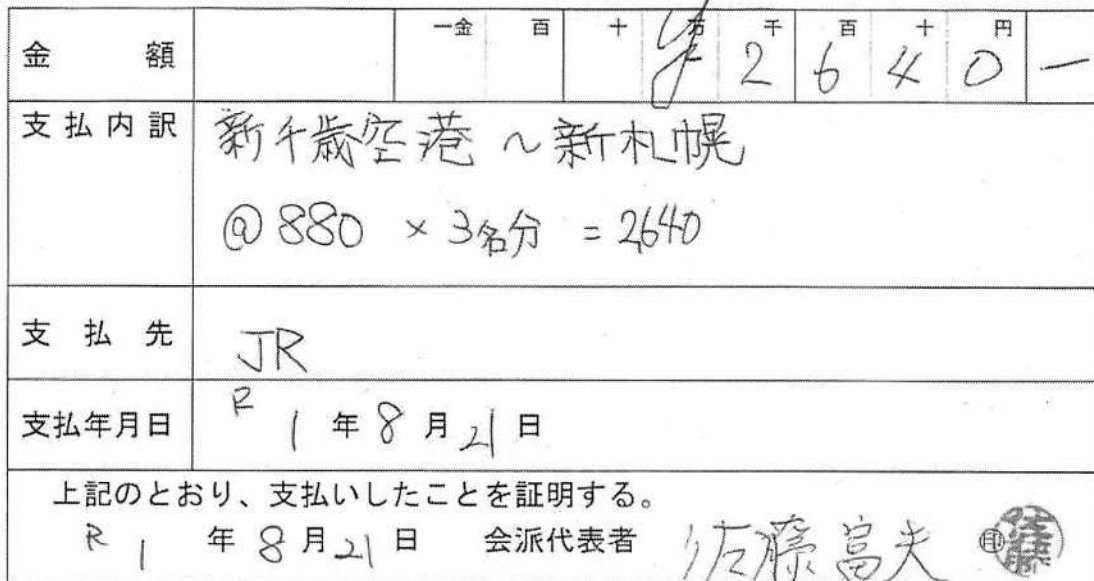 金額 一金 百 十 万 千 百 十 円
¥2640—
支払内訳 新千歳空港～新札幌
@880 × 3名分 = 2640
支払先 JR
支払年月日 R1年8月21日
上記のとおり、支払いしたことを証明する。
R1年8月21日 会派代表者 佐藤富夫 ㊞ 佐藤